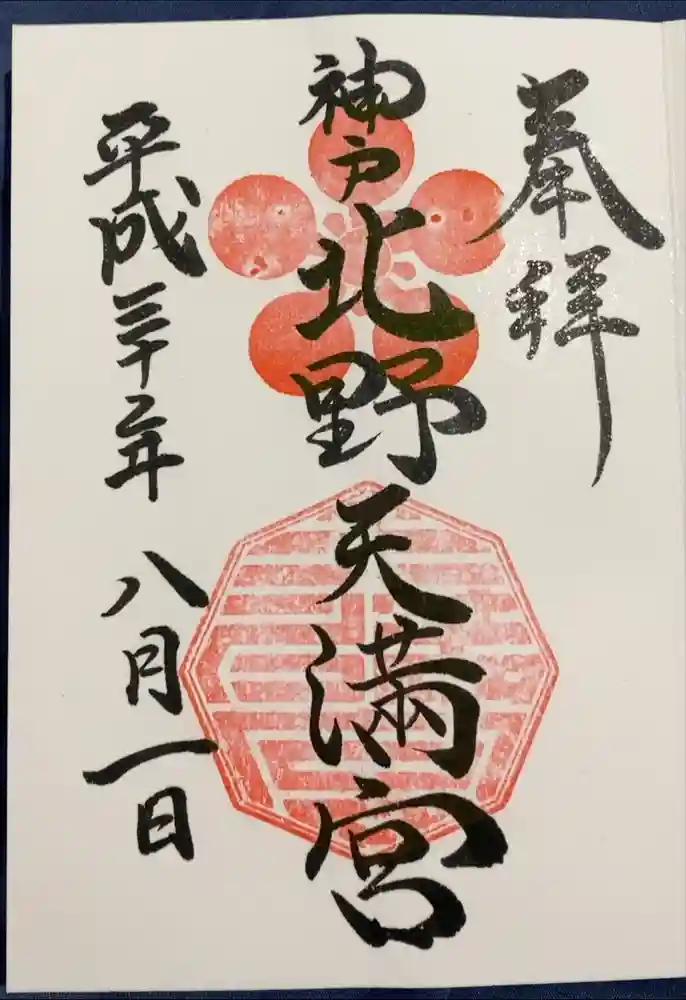 奉拝
神戸北野天満宮
平成三十二年八月一日